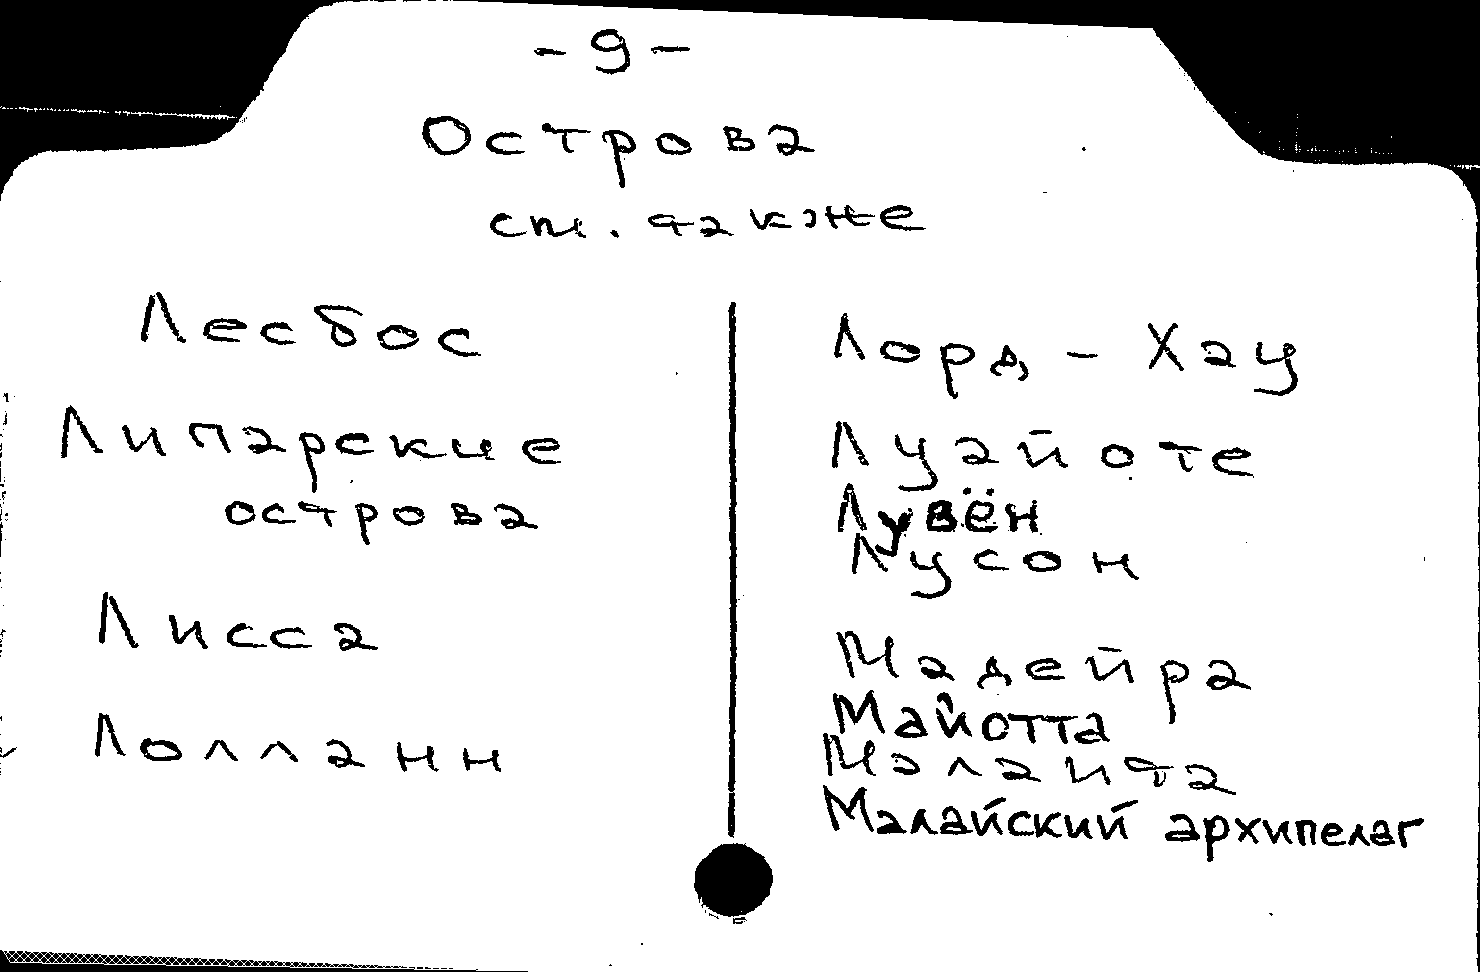 - 9 -
Острова
см. также
Лесбос
Липарские
острова
Лисса
Лолланн
Лорд - Хау
Луайоте
Лувён
Лусон
Мадейра
Майотта
Малаита
Малайский архипелаг